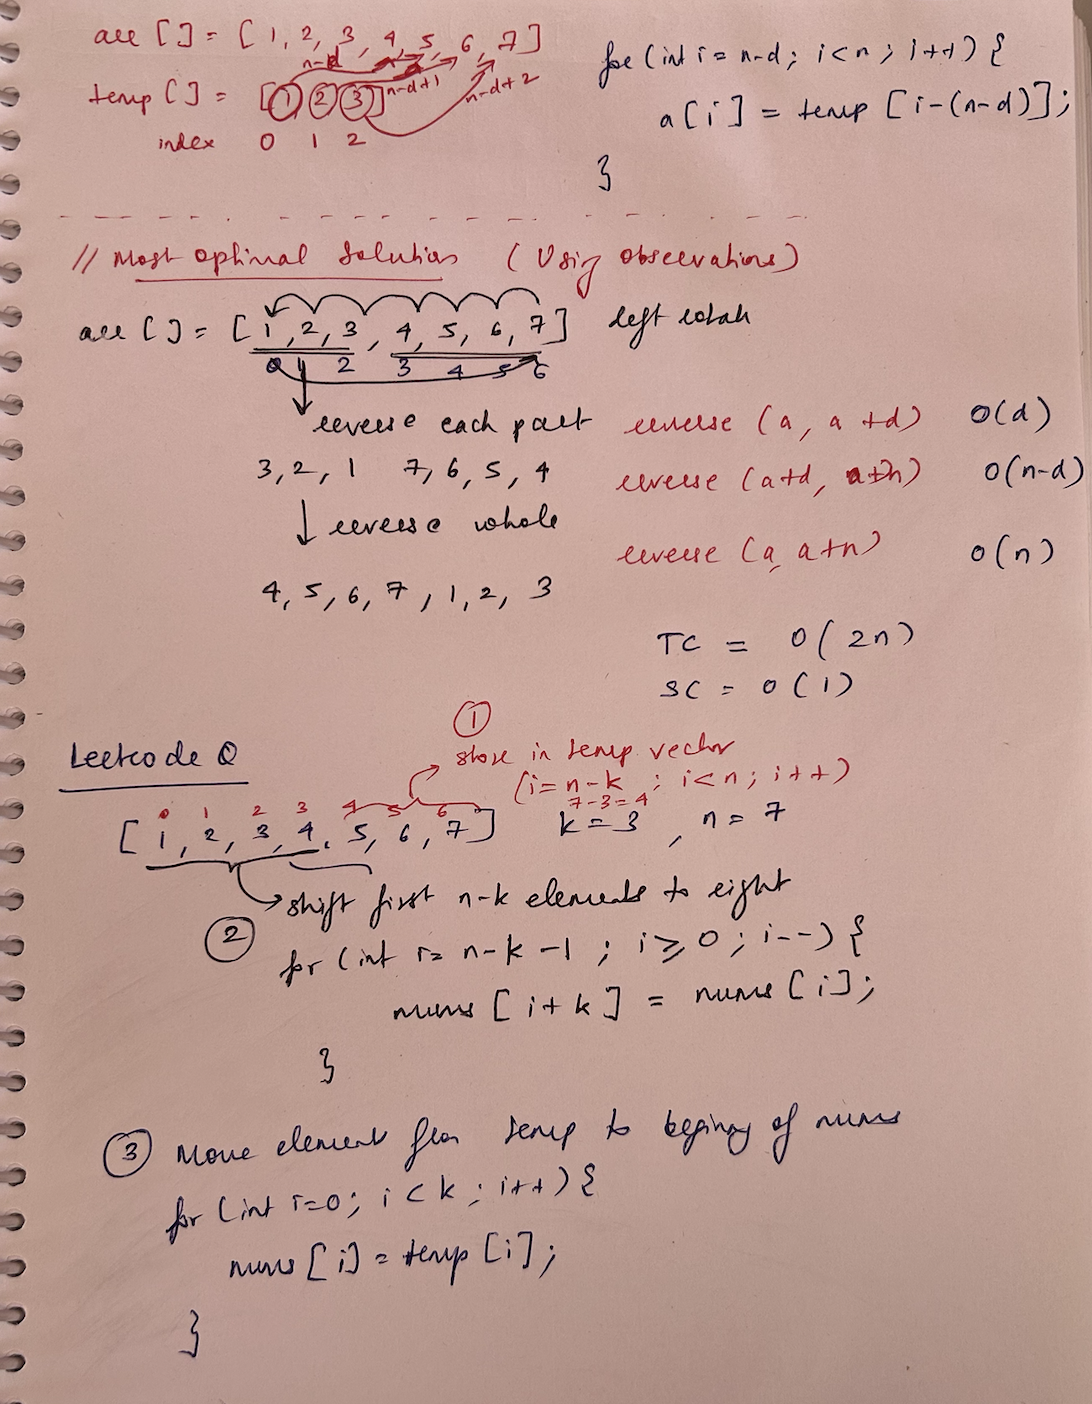 arr [ ] = [ 1, 2, 3, 4, 5, 6, 7 ]
n-d
temp [ ] = [ 1 2 3 ] n-d+1 n-d+2
index 0 1 2
for (int i = n-d; i<n; i++) {
a[i] = temp [i-(n-d)];
}
// Most optimal Solution (Using observations)
arr [ ] = [ 1, 2, 3, 4, 5, 6, 7 ] left rotate
0 1 2 3 4 5 6
reverse each part reverse (a, a+d) O(d)
3, 2, 1 7, 6, 5, 4 reverse (a+d, a+n) O(n-d)
reverse whole
reverse (a, a+n) O(n)
4, 5, 6, 7, 1, 2, 3
TC = O(2n)
SC = O(1)
1
Leetcode Q
store in temp vector
(i=n-k ; i<n; i++)
7-3=4
0 1 2 3 4 5 6
[ 1, 2, 3, 4, 5, 6, 7 ] k=3, n=7
shift first n-k elements to right
2
for (int i= n-k-1 ; i≥0 ; i--) {
nums [i+k] = nums [i];
}
3 Move element from temp to begining of nums
for (int i=0; i<k; i++) {
nums [i] = temp [i];
}